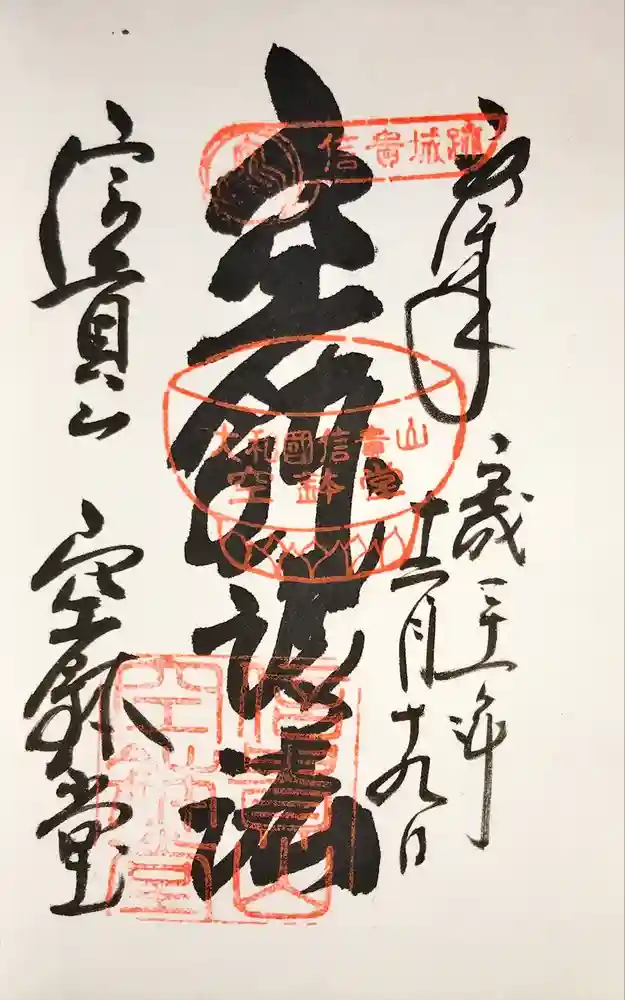 奉拝
十二月十九日
空鉢護法
信貴山 空鉢堂
信貴城跡
大和國信貴山
空鉢堂
信貴山
空鉢堂